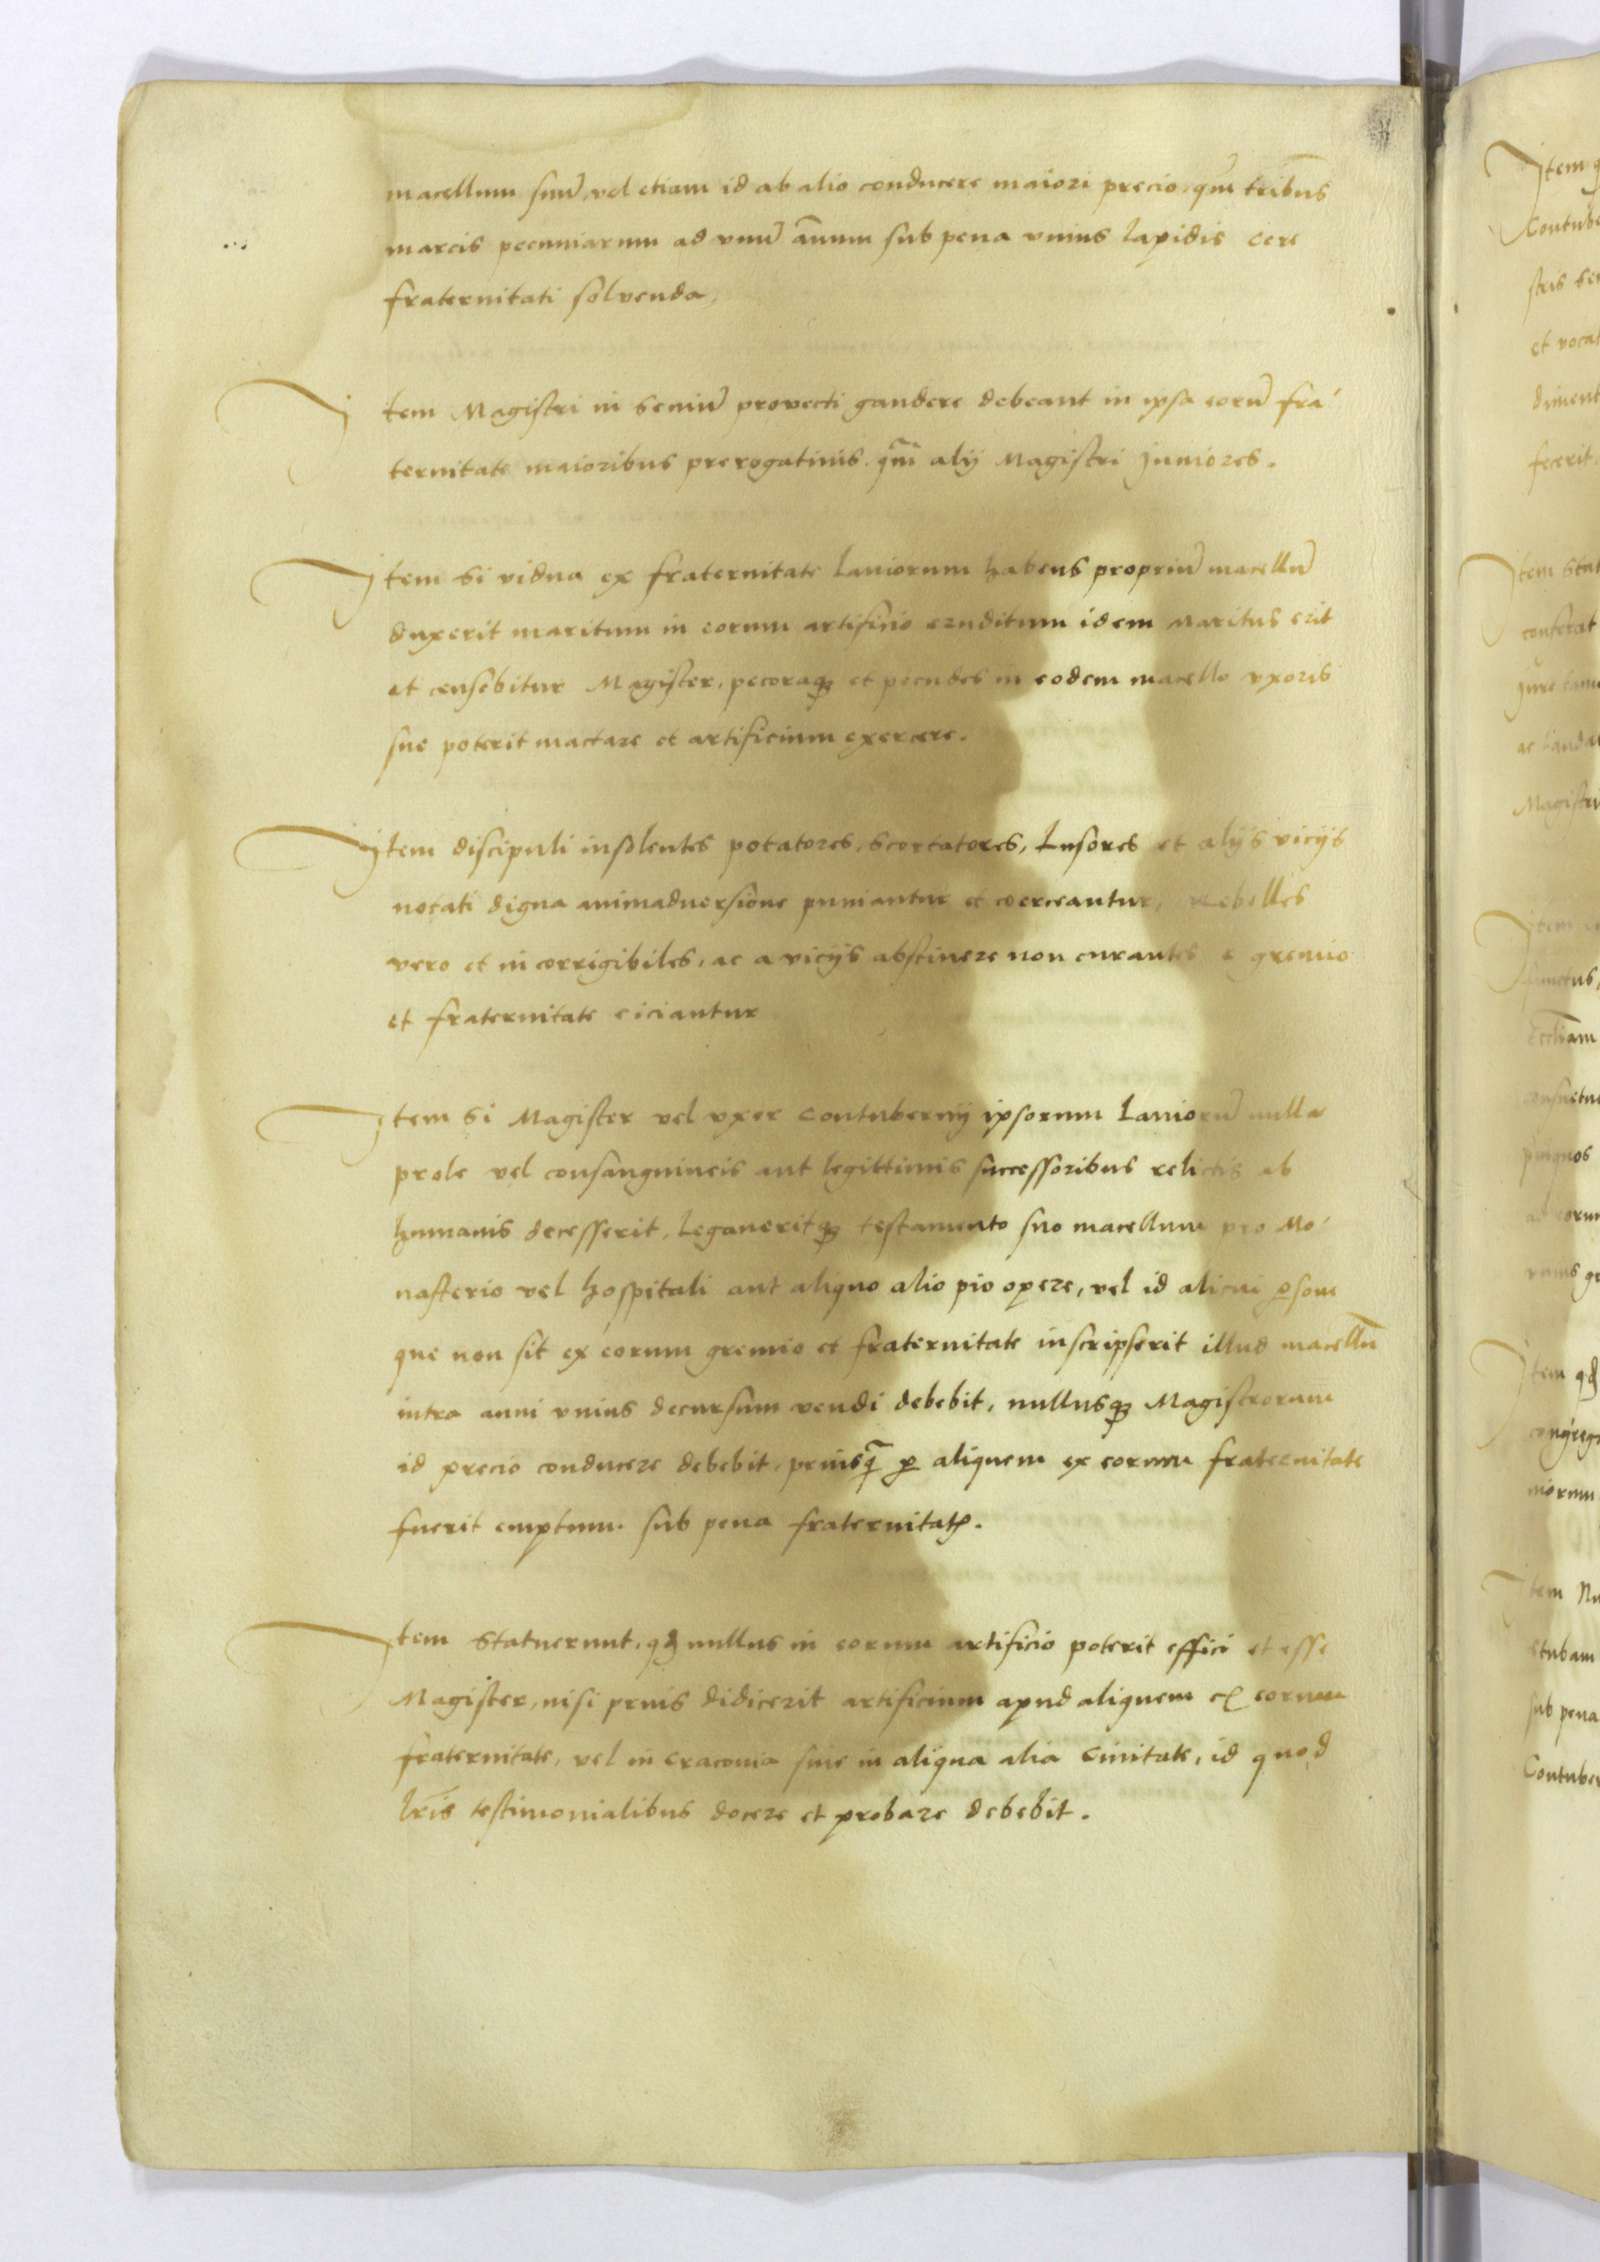 macellum suū, vel etiam id ab alio conducere maiori precio, qm̄ tribus
marcis pecuniarum ad vnū annum sub pena vnius lapidis cere
fraternitati solvenda,
Item Magistri in seniū provecti gaudere debeant in ipsa eorū fra-
ternitate maioribus prerogatiuis, qm̄ alij Magistri Juniores.
Item si vidua ex fraternitate Laniorum habens propriū macellū
duxerit maritum in eorum artificio eruditum idem Maritus erit
et censebitur Magister, pecoraqꝫ et pecudes in eodem macello vxoris
sue poterit mactare et artificium exercere.
Item discipuli insolentes potatores, scortatores, Lusores et alijs vicijs
notati digna animaduersione puniantur et coerceantur, Rebelles
vero et in corrigibiles, ac a vicijs abstinere non curantes e gremio
et fraternitate eiciantur
Item si Magister vel vxor Contubernij ipsorum Laniorū nulla
prole vel consanguineis aut legittimis successoribus relictis ab
humanis decesserit, Legaueritqꝫ testamento suo macellum pro Mo-
nasterio vel hospitali aut aliquo alio pio opere, vel id alicui ꝑsone
que non sit ex eorum gremio et fraternitate inscripserit illud macellū
intra anni vnius decursum vendi debebit, nullusqꝫ Magistrorum
id precio conducere debebit, priusq̄ ꝑ aliquem ex eorum fraternitate
fuerit emptum. sub pena fraternitatꝭ.
Item Statuerunt, qđ nullus in eorum artificio poterit effici et esse
Magister, nisi prius didicerit artificium apud aliquem ex eorum
fraternitate, vel in Cracouia siue in aliqua alia Ciuitate, id quod
lr̄is testimonialibus docere et probare debebit.
Item
Contube
et voca
diment
fecerit
Item Stat
Magistri
Item qđ
congrega
niorum
Item Nu
stubam
sub pena
Contuber